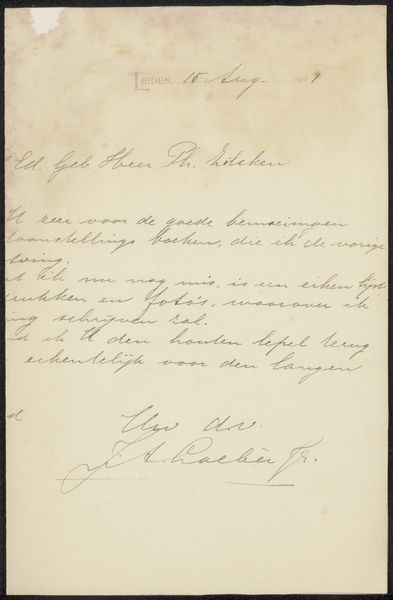 LEIDEN, 10 Aug. 1901
Ed. Geb. Heer Ph. Zilcken
U zeer voor de goede bemoeiingen
toonstellings boeken, die ik de vorige
tving.
at ik nu nog mis, is een eiken lijst
ukken en foto's, waarover ik
ing schrijven zal.
nd ik U den houten lepel terug
erkentelijk voor den langen
d
Uw d.v.
J.A. Loebèr Jr.